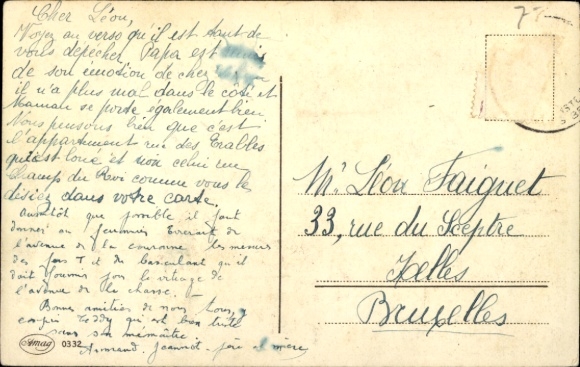 Cher Léon,
Voyez au verso qu'il est tant de
vous depecher. Papa est
de son émotion de chez
il n'a plus mal dans le côté et
Maman se porte également bien
Nous pensons bien que c'est
l'appartement rue des Erables
qui est loué et non celui rue
Champ du Roi comme vous le
disiez dans votre carte.
Aussitôt que possible il faut
donner au
l'avenue de la couronne les mesures
des fers T et du basculant qu'il
doit fournir pour le vitrage de
l'avenue de la chasse. —
Bonnes amitiés de nous tous, y
compris Teddy qui est bien
sans son mémaître.
Armand, Jeannot, père et mère
Mr Léon Faignet
33, rue du Sceptre
Ixelles
Bruxelles
Amag 0332